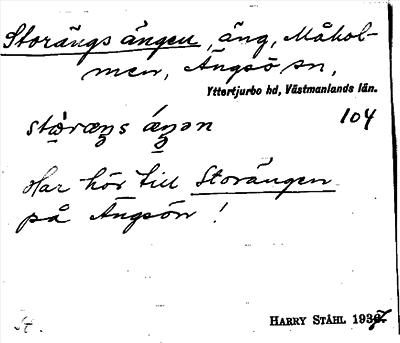 Storängsängen, äng, Måhol-
men, Ängsö sn,
Yttertjurbo hd, Västmanlands län.
104
Har hör till Storängen
på Ängsön!
St.
HARRY STÅHL 1937.